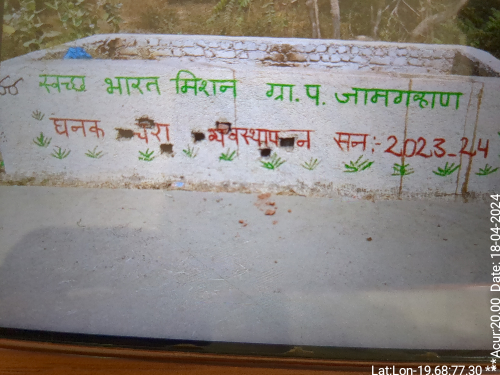 स्वच्छ भारत मिशन ग्रा. प. जामगव्हाण
घनक चरा व्यवस्थापन सन:- 2023-24
Lat:Lon-19.68:77.30 ** Acur:20.00 Date: 18-04-2024